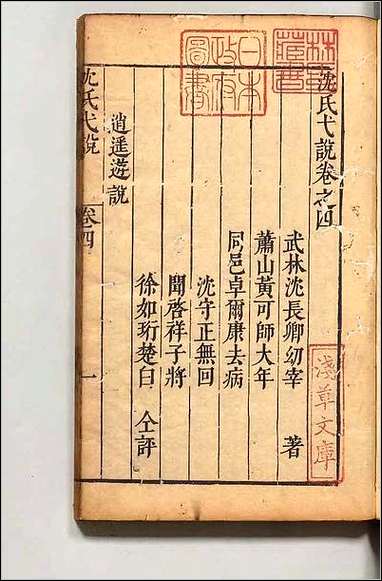 沈氏弋說卷之四
武林沈長卿幼宰　著
蕭山黃可師大年
同邑卓爾康去病
沈守正無回
聞啓祥子將
徐如珩楚白　仝評
逍遙遊說
沈氏弋說
卷四
一
林氏藏書
日本政府圖書
淺草文庫